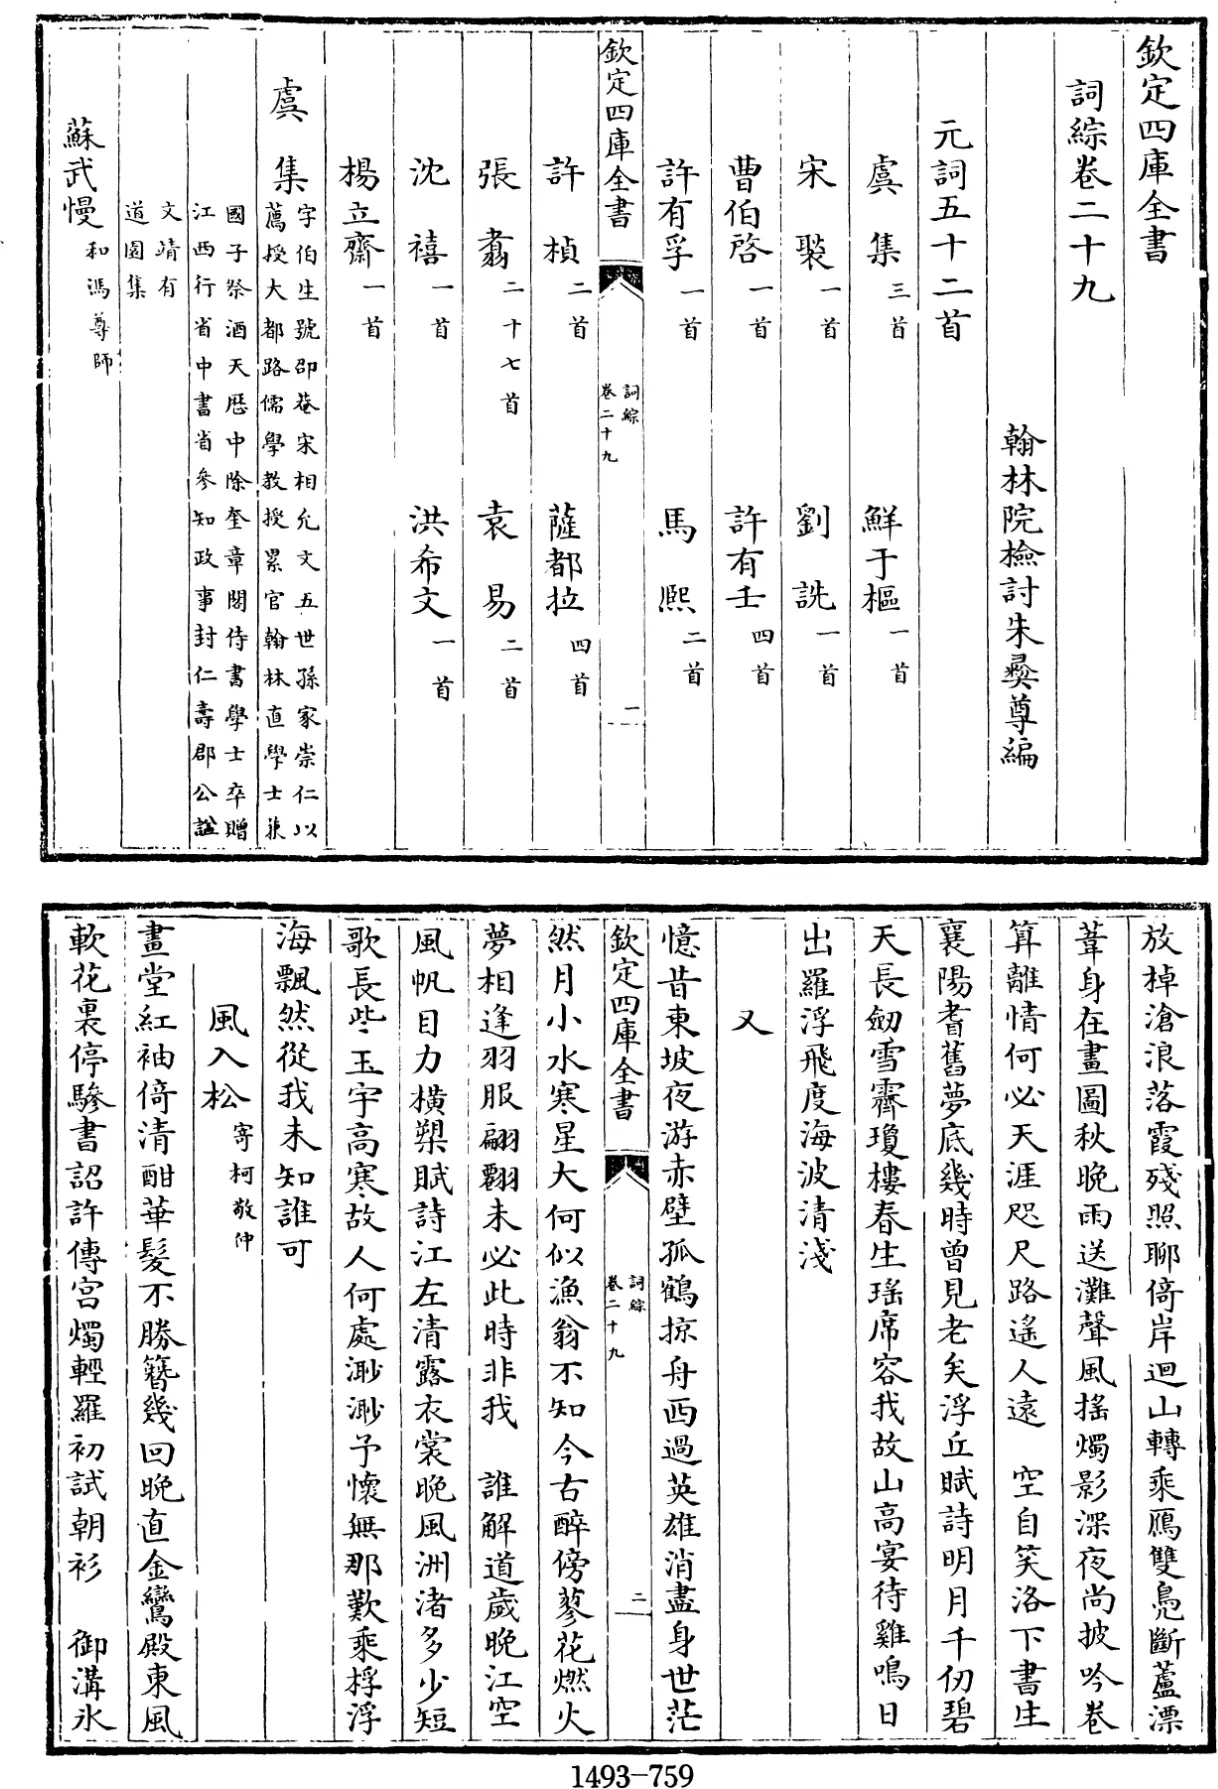 欽定四庫全書
詞綜卷二十九
翰林院檢討朱彝尊編
元詞五十二首
虞集三首 鮮于樞一首
宋褧一首 劉詵一首
曹伯啓一首 許有壬四首
許有孚一首 馬熙二首
欽定四庫全書 詞綜卷二十九 一
許楨二首 薩都拉四首
張翥二十七首 袁易二首
沈禧一首 洪希文一首
楊立齋一首
虞集 字伯生號邵菴宋相允文五世孫家崇仁以
薦授大都路儒學教授累官翰林直學士兼
國子祭酒天厯中除奎章閣侍書學士卒贈
江西行省中書省參知政事封仁壽郡公諡
文靖有
道園集
蘇武慢 和馮尊師
放棹滄浪落霞殘照聊倚岸迴山轉乘鴈雙鳬斷蘆漂
葦身在畫圖秋晚雨送灘聲風搖燭影深夜尚披吟卷
算離情何必天涯咫尺路遙人遠 空自笑洛下書生
襄陽耆舊夢底幾時曾見老矣浮丘賦詩明月千仞碧
天長劒雪霽瓊樓春生瑤席容我故山高宴待雞鳴日
出羅浮飛度海波清淺
又
憶昔東坡夜游赤壁孤鶴掠舟西過英雄消盡身世茫
欽定四庫全書 詞綜卷二十九 二
然月小水寒星大何似漁翁不知今古醉傍蓼花燃火
夢相逢羽服翩翻未必此時非我 誰解道歲晚江空
風帆目力橫槊賦詩江左清露衣裳晚風洲渚多少短
歌長些玉宇高寒故人何處渺渺予懷無那歎乘桴浮
海飄然從我未知誰可
風入松 寄柯敬仲
畫堂紅袖倚清酣華髮不勝簪幾回晚直金鸞殿東風
軟花裏停驂書詔許傳宮燭輕羅初試朝衫 御溝氷
1493-759